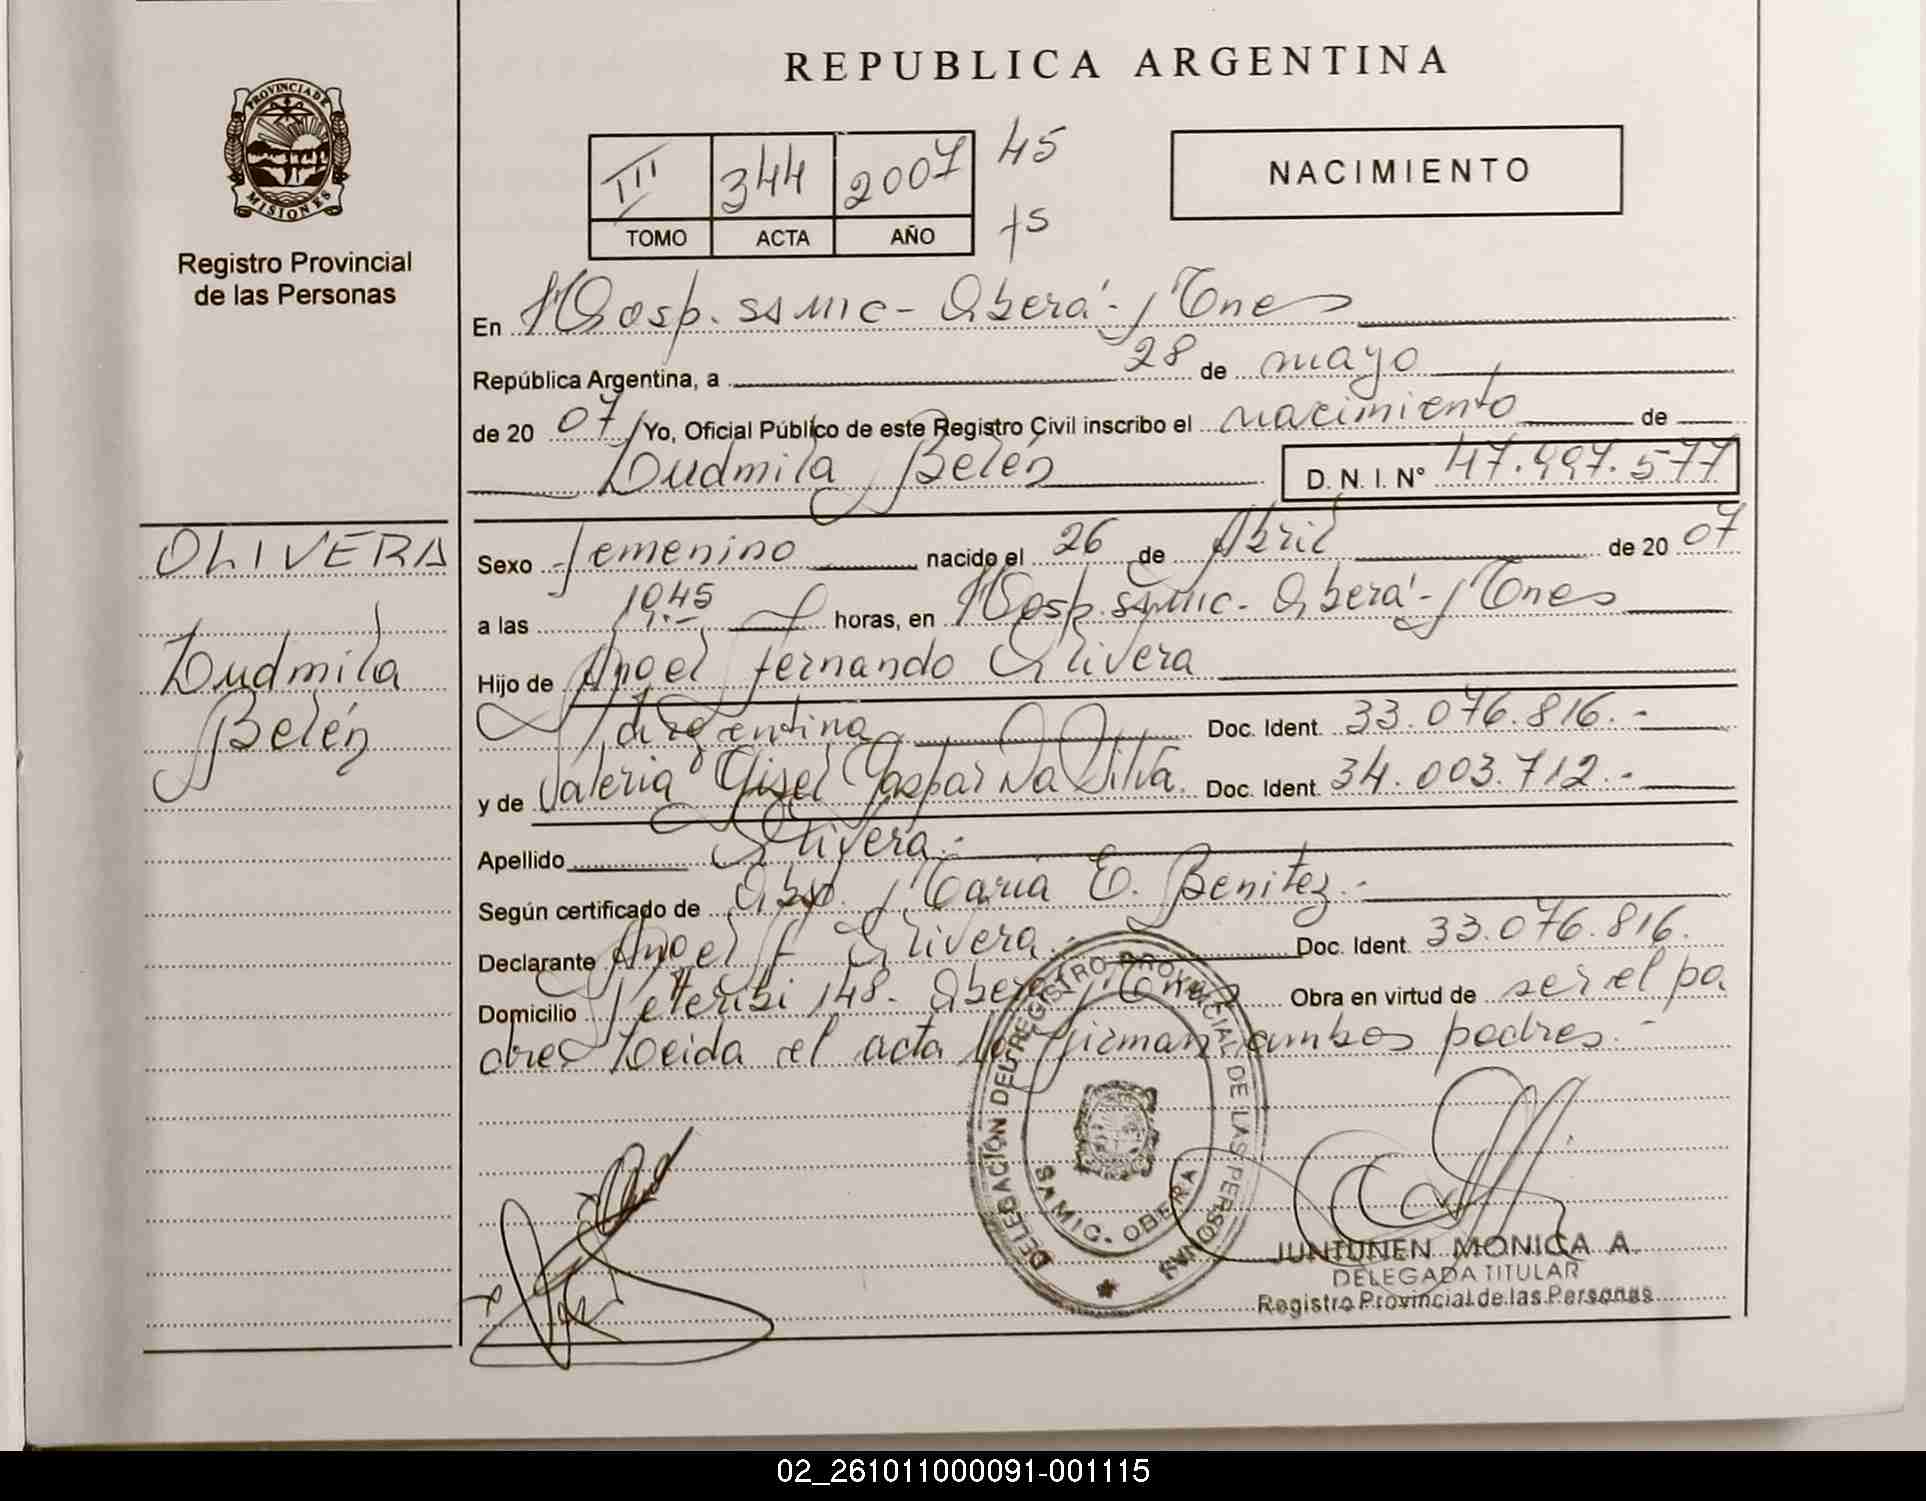 REPUBLICA ARGENTINA
PROVINCIA DE MISIONES
Registro Provincial
de las Personas
III 344 2007 45
TOMO ACTA AÑO 75
NACIMIENTO
En Hosp. SAMIC - Oberá - Mnes
República Argentina, a 28 de mayo
de 20 07 Yo, Oficial Público de este Registro Civil inscribo el nacimiento de
Ludmila Belén D. N. I. N° 47.997.577
OLIVERA
Ludmila
Belén
Sexo femenino nacido el 26 de Abril de 20 07
a las 10,45 horas, en Hosp. SAMIC - Oberá - Mnes
Hijo de Angel Fernando Olivera
Argentina Doc. Ident. 33.076.816.-
y de Valeria Gisel Gaspar Da Silva. Doc. Ident. 34.003.712.-
Apellido Olivera.-
Según certificado de Obst. Maria E. Benitez.-
Declarante Angel F Olivera.- Doc. Ident. 33.076.816.
Domicilio 148. Oberá Mnes Obra en virtud de ser el pa
dre Leida el acta la firman ambos padres.-
DELEGACION DEL REGISTRO PROVINCIAL DE LAS PERSONAS
SAMIC. OBERA
JUNTUNEN MONICA A.
DELEGADA TITULAR
Registro Provincial de las Personas
02_261011000091-001115